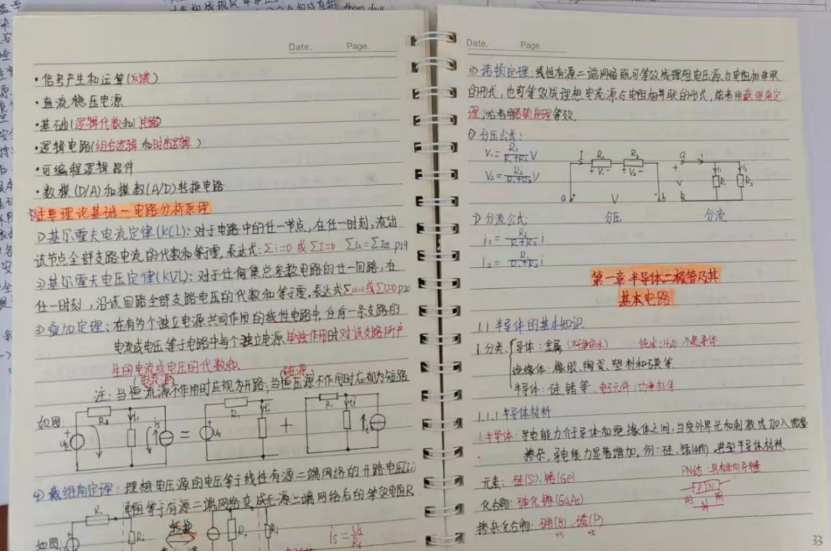 Date. Page.
·信号产生和运算(反馈)
·直流稳压电源
·基础(逻辑代数和门电路)
·逻辑电路(组合逻辑和时序逻辑)
·可编程逻辑器件
·数模(D/A)和模数(A/D)转换电路
主要理论基础-电路分析原理
1)基尔霍夫电流定律(KCL):对于电路中的任一节点,在任一时刻,流出
该节点全部支路电流的代数和等于零,表达式:Σi=0 或 ΣI=0 P19
2)基尔霍夫电压定律(KVL):对于任何集总参数电路的任一回路,在
任一时刻,沿该回路全部支路电压的代数和等于零,表达式Σu=0或ΣU=0 P20
3)叠加定理:在有多个独立电源共同作用的线性电路中,任意一条支路的
电流或电压等于电路中每个独立电源单独作用时对该支路所产
生的电流或电压的代数和
(电流源) (电压源)
注:当恒流源不作用时应视为开路,当恒压源不作用时应视为短路
如图
= +
4)戴维南定理:理想电压源的电压等于线性有源二端网络的开路电压
电阻等于有源二端网络变成无源二端网络后的等效电阻R
如图
Date. Page.
5)诺顿定理:线性有源二端网络既可等效成理想电压源与电阻相串联
的形式,也可等效成理想电流源与电阻相并联的形式,前者用戴维南定
理,后者用诺顿定理等效
6)分压公式:
分压 分流
7)分流公式:
第一章 半导体二极管及其
基本电路
1.1 半导体的基本知识
分类: 导体:金属 纯水:H₂O 不是导体
绝缘体:橡胶,陶瓷,塑料和石英等
半导体:硅,锗等
1.1.1 半导体材料
半导体:导电能力介于导体和绝缘体之间,当受外界光和热刺激或加入微量
掺杂,导电能力显著增加。例:硅,锗 典型半导体材料
元素:硅(Si)、锗(Ge)
化合物:砷化镓(GaAs)
掺杂化合物:硼(B)、磷(P)
33